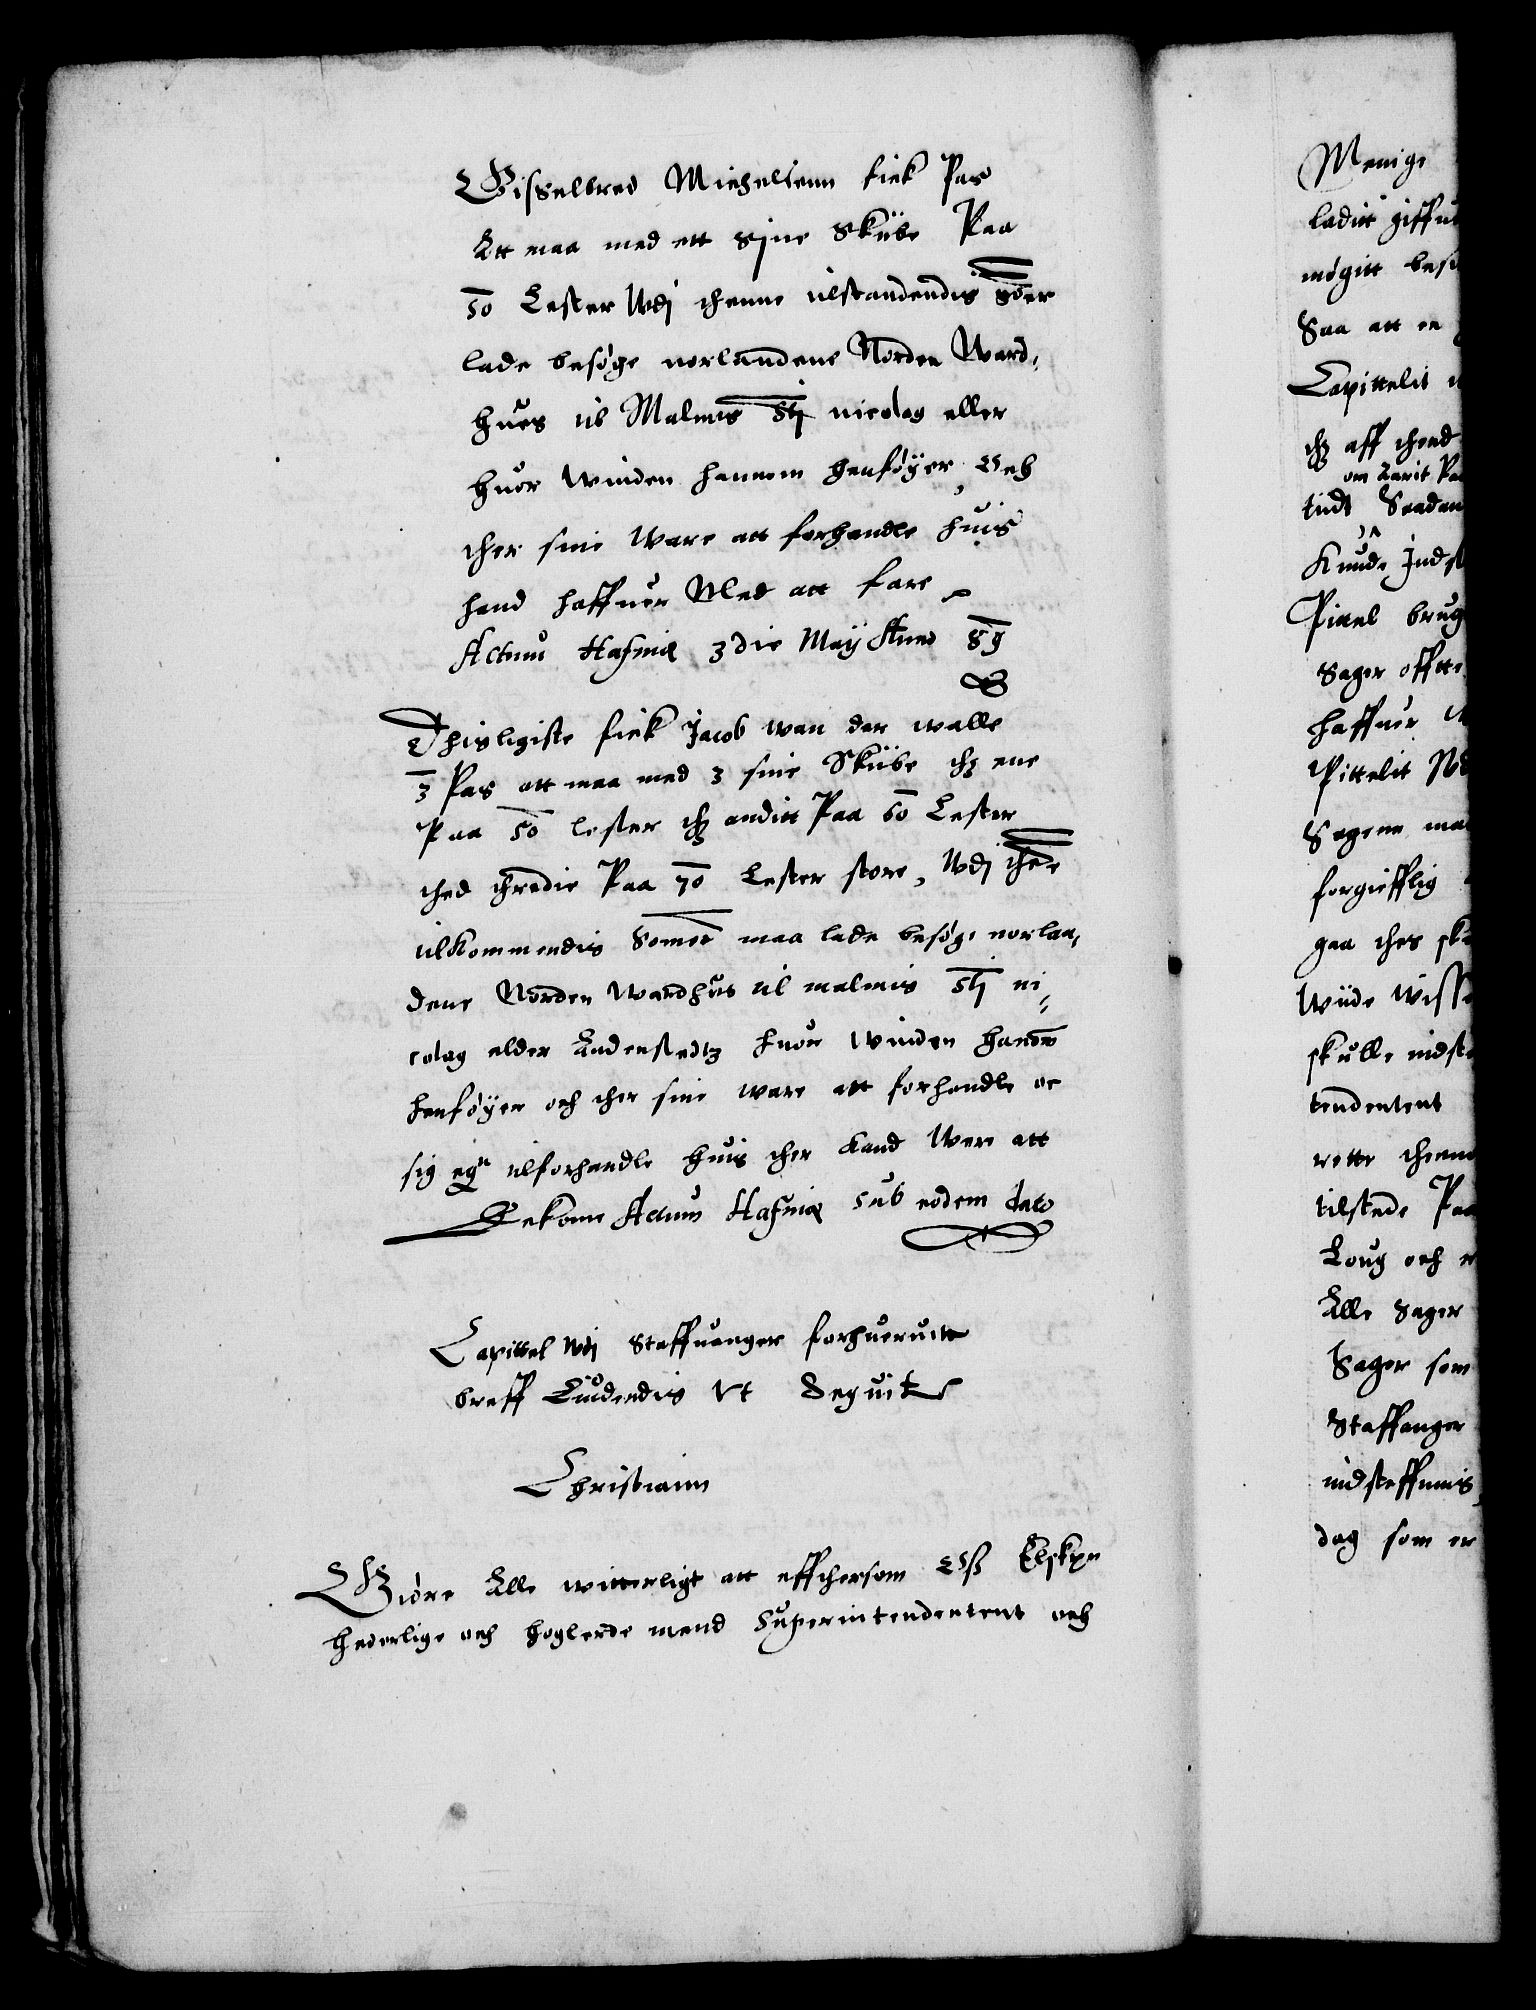 Gisselbret Michelsenn fick Pas
Att maa med ett sijne Skiibe Paa
50 Lester Wdj thenne tilstandendis Somer
lade besøge norlandene Norden Ward,
hues til Malmis Stj nicolag eller
huor Winden hannom henføyer, Och
ther sine Ware att forhandle huis
hand haffuer Med att fare
Actum Hafniæ 3 die Maij Anno 89
Thisligiste fick Jacob wan der walle
3 Pas att maa med 3 sine Skiibe thz ene
Paa 50 lester thz anditt Paa 60 Lester
thed thredie Paa 70 Lester store, Wdj thee
tilkommendis Somer maa lade besøge norlan,
dene Norden Wardhus til malmis Stj ni,
colag elder Andenstedtz huor Winden hanom
henføyer och ther sine ware att forhandle oc
sig egn tilforhandle huis ther kand Were att
Bekome Actum Hafniæ sub eodem dato
Capittel Wdj Staffuanger forhueruitt
breff Liudendis Vt Sequitur
Christiann
Giøre Alle witterligt att effthersom Oss Elskpn
hederlige och høglerde mend Superintendentent och
Menige
ladit giffue
møgitt
Saa att en
Capittelit
thz aff thend
tiidt Saadan
Knude Indst
Pittel brug
Sager offtte
haffuer
Pittelit
Sagene maa
forgiefflig
gaa thes
Wiide Wisse
skulle indst
tendentent
rette thenn
tilstede Paa
Loug och
Alle Sager
Sager som
Staffanger
indsteffnis
dag som er